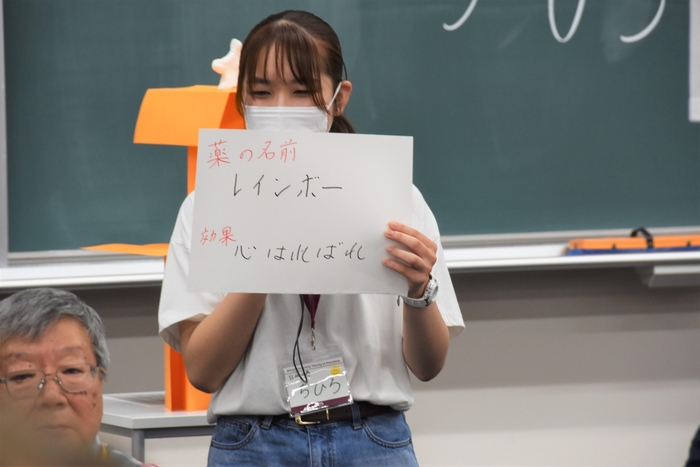 薬の名前
レインボー
効果
心はればれ
ちひろ